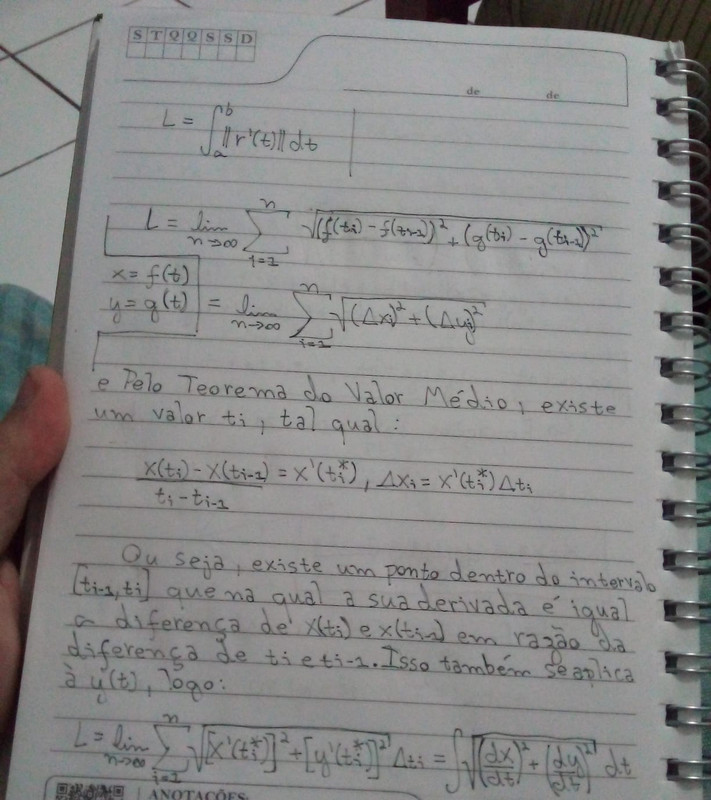 S T Q Q S S D
de de
L = ∫ₐᵇ ‖r'(t)‖ dt
L = lim n→∞ Σ i=1 n √(f(ti) - f(ti-1))² + (g(ti) - g(ti-1))²
x = f(t)
y = g(t) = lim n→∞ Σ i=1 n √(Δxi)² + (Δyi)²
e Pelo Teorema do Valor Médio, existe
um valor ti, tal qual:
x(ti) - x(ti-1) / ti - ti-1 = x'(ti*), Δxi = x'(ti*) Δti
Ou seja, existe um ponto dentro do intervalo
[ti-1, ti] que na qual a sua derivada é igual
a diferença de x(ti) e x(ti-1) em razão da
diferença de ti e ti-1. Isso também se aplica
à y'(t), logo:
L = lim n→∞ Σ i=1 n √[x'(ti*)]² + [y'(ti*)]² Δti = ∫√(dx/dt)² + (dy/dt)² dt
ANOTAÇÕES: